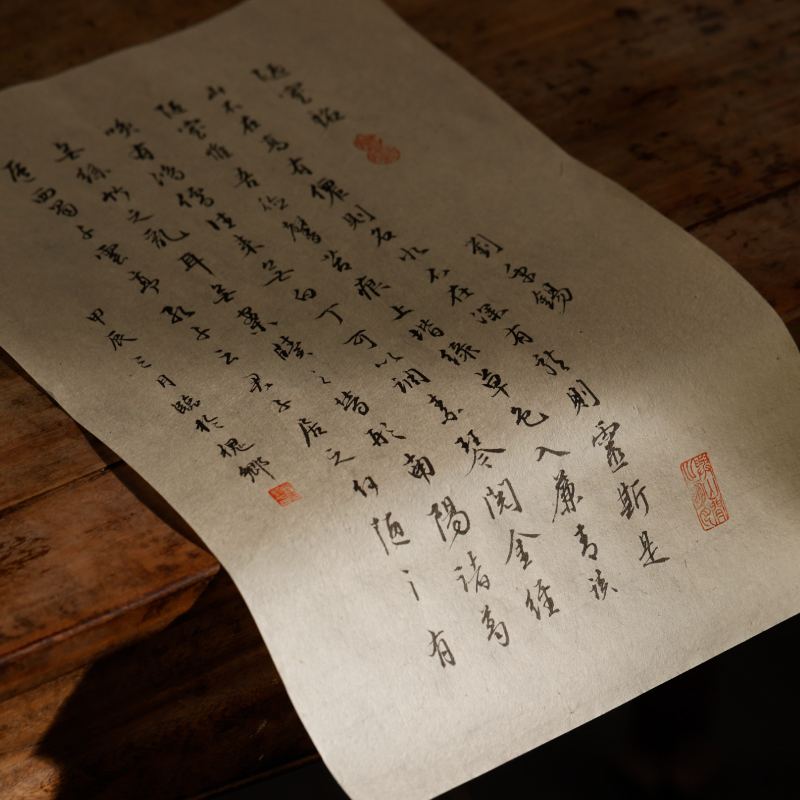 陋室銘　刘禹錫
山不在高有僊則名水不在深有龍則靈斯是
陋室惟吾德馨苔痕上堦綠草色入簾青談
笑有鴻儒往來無白丁可以調素琴閱金經
無絲竹之亂耳無案牘之勞形南陽諸葛
廬西蜀子雲亭孔子云君子居之何陋之有
甲辰三月臨於槐鄉